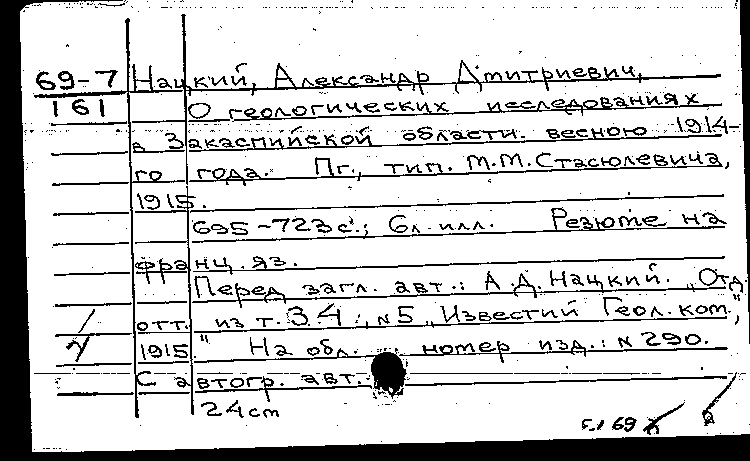 69-7 Нацкий, Александр Дмитриевич,
161 О геологических исследованиях
в Закаспийской области весною 1914-
го года. Пг., тип. М.М.Стасюлевича,
1915.
695-723с.; 6л.илл. Резюме на
франц.яз.
Перед загл. авт.: А.Д.Нацкий. „Отд.
отт. из т.34, №5 „Известий Геол.ком.",
1915." На обл. номер изд.: №290.
С автогр. авт.
24см
69